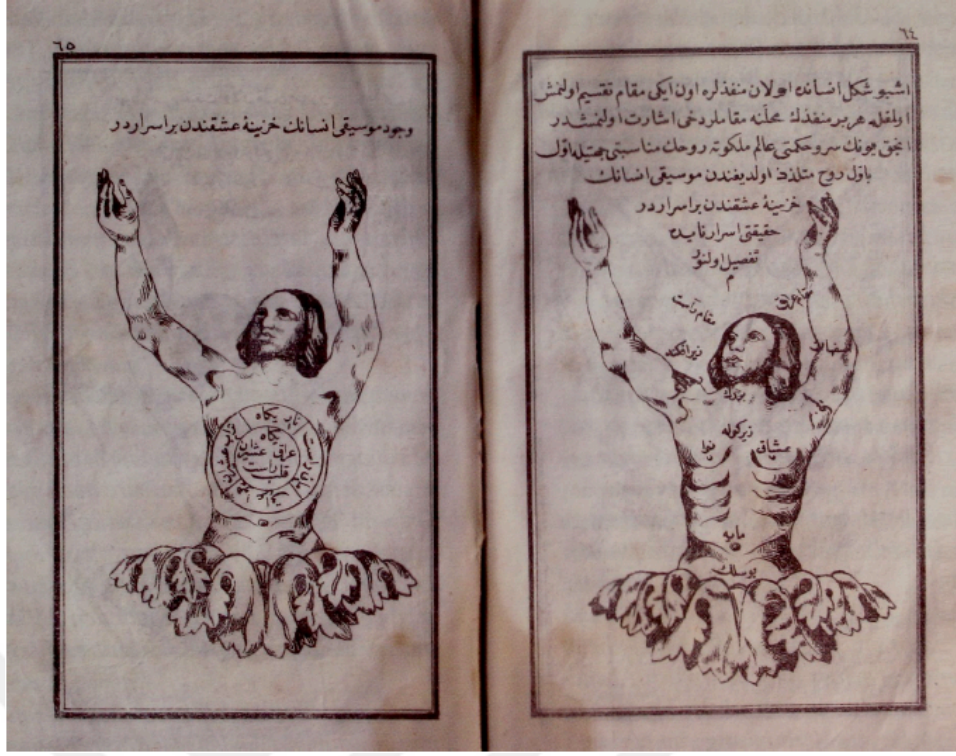 ٦٤
اشبو شكل انسانده اولان منفذلره اون ایكی مقام تقسیم اولنمش
اولغله هر بر منفذك محلّنه مقاملر دخی اشارت اولنمشدر
انجق بونك سر و حكمتی عالم ملكوته روحك مناسبتی جهتیله اوّل
باوّل روح متلذذ اولدیغندن موسیقی انسانك
خزینهٔ عشقندن بر اسراردر
حقیقتی اسرار نایده
تفصیل اولنور
م
مقام عراق
مقام راست
اصفهان
زیرافكند
بزرك
زیركوله
عشاق
نوا
مایه
بوسلك
٦٥
وجود موسیقی انسانك خزینهٔ عشقندن بر اسراردر
یكاه
یكاه
عراق عشیران
راست